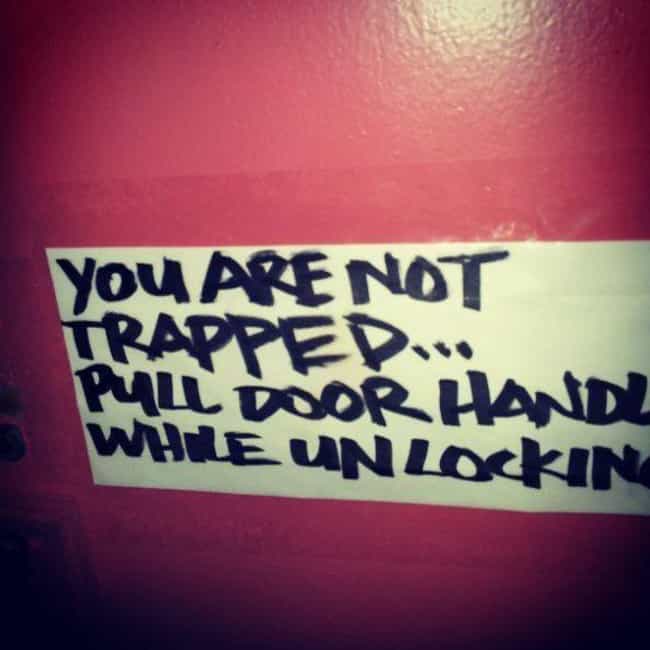 YOU ARE NOT
TRAPPED...
PULL DOOR HANDL
WHILE UNLOCKING